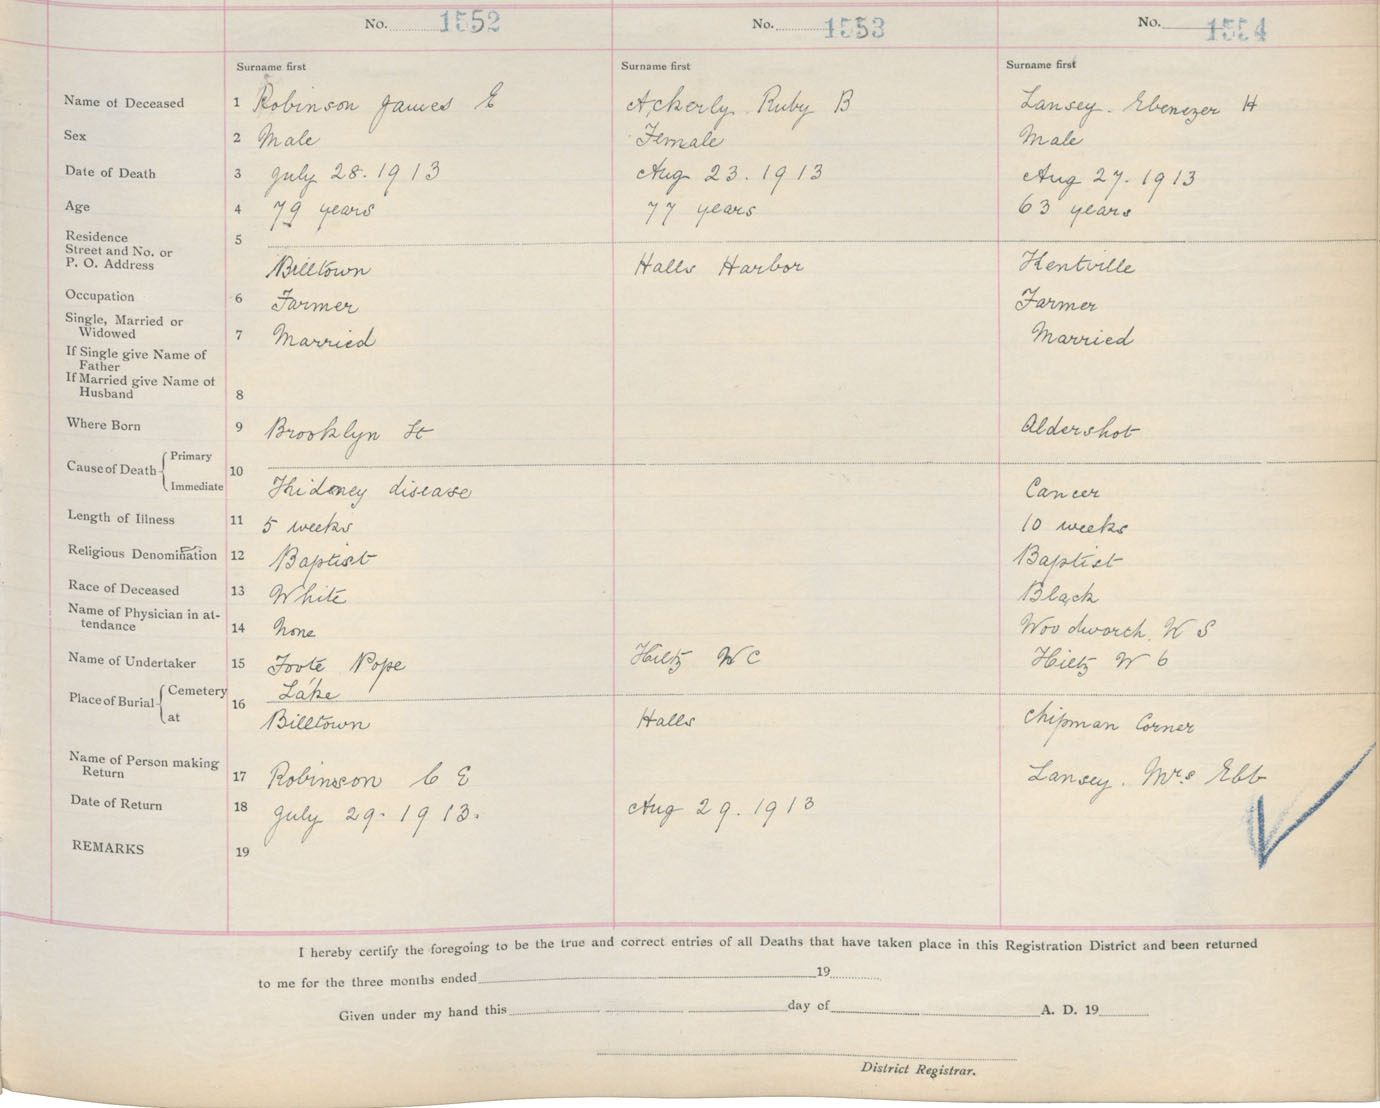 No. 1552 No. 1553 No. 1554
Surname first Surname first Surname first
Name of Deceased 1 Robinson James E Ackerly. Ruby B Lansey. Ebenezer H
Sex 2 Male Female Male
Date of Death 3 July 28. 1913 Aug 23. 1913 Aug 27. 1913
Age 4 79 years 77 years 63 years
Residence 5
Street and No. or
P. O. Address Billtown Halls Harbor Kentville
Occupation 6 Farmer Farmer
Single, Married or
Widowed 7 Married Married
If Single give Name of
Father
If Married give Name of
Husband 8
Where Born 9 Brooklyn St Aldershot
Primary
Cause of Death 10
Immediate Khidney disease Cancer
Length of Illness 11 5 weeks 10 weeks
Religious Denomination 12 Baptist Baptist
Race of Deceased 13 White Black
Name of Physician in at-
tendance 14 None Woodworth. W S
Name of Undertaker 15 Foote Pope Hiltz W C Hiltz W C
Cemetery Lake
Place of Burial 16
at Billtown Halls Chipman Corner
Name of Person making
Return 17 Robinson C E Lansey. Mrs Ebb
Date of Return 18 July 29. 1913. Aug 29. 1913
REMARKS 19
I hereby certify the foregoing to be the true and correct entries of all Deaths that have taken place in this Registration District and been returned
to me for the three months ended 19
Given under my hand this day of A. D. 19
District Registrar.